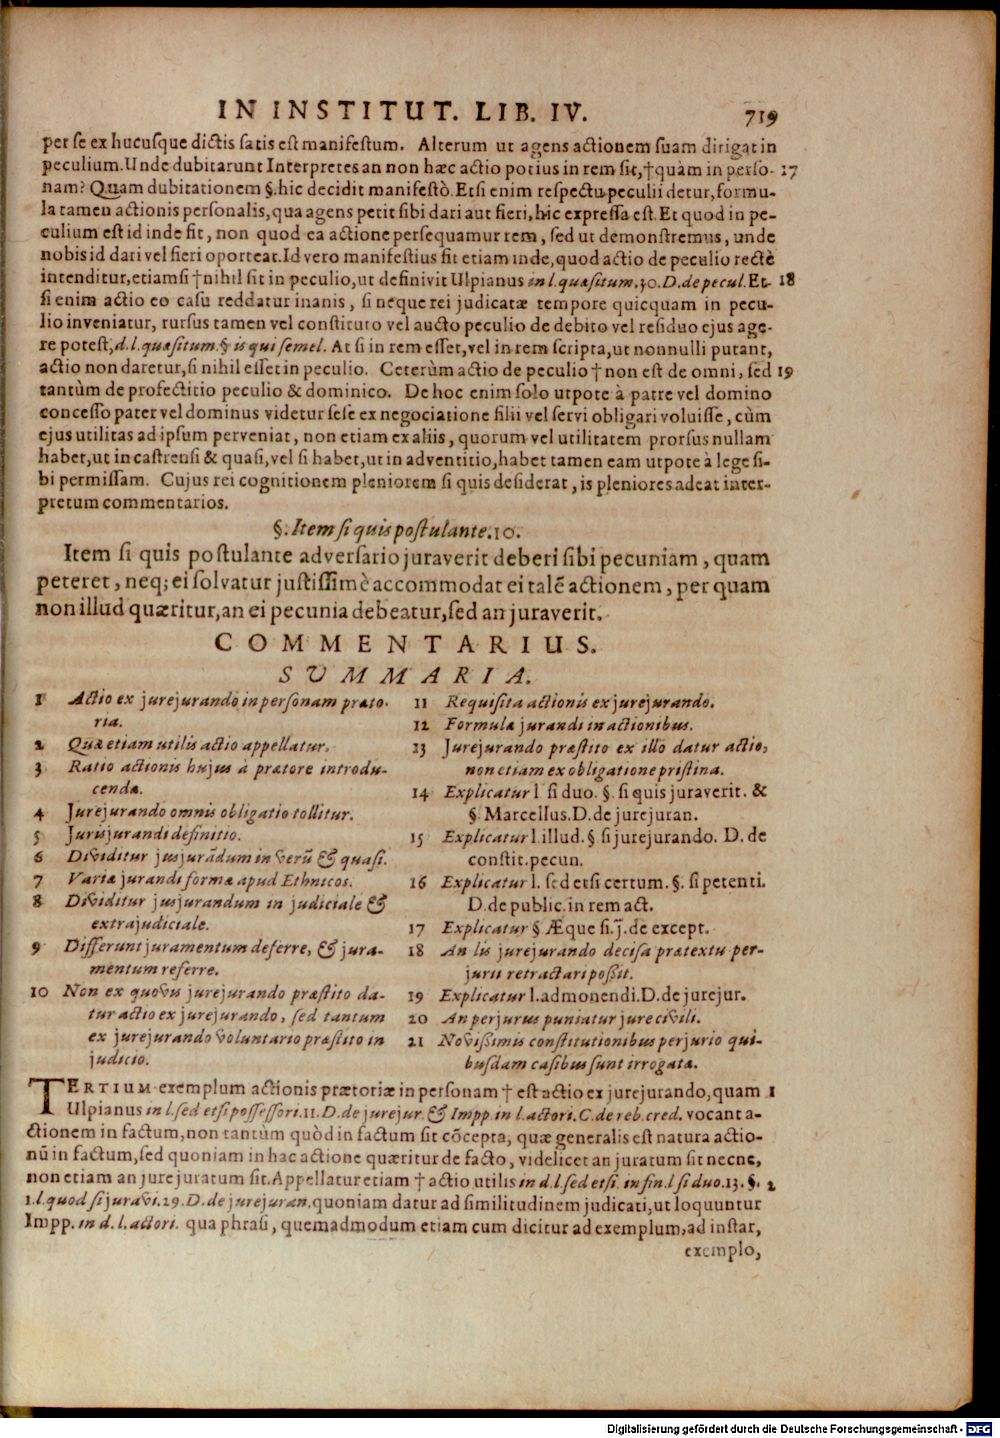 IN INSTITUT. LIB. IV. 719
per se ex hucusque dictis satis est manifestum. Alterum ut agens actionem suam dirigat in
peculium. Unde dubitarunt Interpretes an non hæc actio potius in rem sit, †quàm in perso- 17
nam? Quam dubitationem §. hic decidit manifestò. Etsi enim respectu peculii detur, formu-
la tamen actionis personalis, qua agens petit sibi dari aut fieri, hic expressa est. Et quod in pe-
culium est id inde fit, non quod ea actione persequamur rem, sed ut demonstremus, unde
nobis id dari vel fieri oporteat. Id vero manifestius fit etiam inde, quod actio de peculio rectè
intenditur, etiamsi †nihil sit in peculio, ut definivit Ulpianus in l. quæsitum. 30. D. de pecul. Et- 18
si enim actio eo casu reddatur inanis, si neque rei judicatæ tempore quicquam in pecu-
lio inveniatur, rursus tamen vel constituto vel aucto peculio de debito vel residuo ejus age-
re potest, d. l. quæsitum. § is qui semel. At si in rem esset, vel in rem scripta, ut nonnulli putant,
actio non daretur, si nihil esset in peculio. Ceterùm actio de peculio † non est de omni, sed 19
tantùm de profectitio peculio & dominico. De hoc enim solo utpote à patre vel domino
concesso pater vel dominus videtur sese ex negociatione filii vel servi obligari voluisse, cùm
ejus utilitas ad ipsum perveniat, non etiam ex aliis, quorum vel utilitatem prorsus nullam
habet, ut in castrensi & quasi, vel si habet, ut in adventitio, habet tamen eam utpote à lege si-
bi permissam. Cujus rei cognitionem pleniorem si quis desiderat, is pleniores adeat inter-
pretum commentarios.
§. Item si quis postulante. 10.
Item si quis postulante adversario juraverit deberi sibi pecuniam, quam
peteret, neq; ei solvatur justissimè accommodat ei talē actionem, per quam
non illud quæritur, an ei pecunia debeatur, sed an juraverit.
COMMENTARIUS.
SUMMARIA.
1 Actio ex jurejurando in personam præto-
ria.
2 Quæ etiam utilis actio appellatur.
3 Ratio actionis hujus à prætore introdu-
cenda.
4 Jurejurando omnis obligatio tollitur.
5 Jurisjurandi definitio.
6 Dividitur jusjurādum in verū & quasi.
7 Variæ jurandi formæ apud Ethnicos.
8 Dividitur jusjurandum in judiciale &
extrajudiciale.
9 Differunt juramentum deferre, & jura-
mentum referre.
10 Non ex quovis jurejurando præstito da-
tur actio ex jurejurando, sed tantum
ex jurejurando voluntario præstito in
judicio.
11 Requisita actionis ex jurejurando.
12 Formula jurandi in actionibus.
13 Jurejurando præstito ex illo datur actio,
non etiam ex obligatione pristina.
14 Explicatur l si duo. §. si quis juraverit. &
§. Marcellus. D. de jurejuran.
15 Explicatur l. illud. § si jurejurando. D. de
constit. pecun.
16 Explicatur l. sed etsi certum. §. si petenti.
D. de public. in rem act.
17 Explicatur § Æque si. j. de except.
18 An lis jurejurando decisa prætextu per-
jurii retractari possit.
19 Explicatur l. admonendi. D. de jurejur.
20 An perjurus puniatur jure civili.
21 Novissimis constitutionibus perjurio qui-
busdam casibus sunt irrogata.
TERTIUM exemplum actionis prætoriæ in personam † est actio ex jurejurando, quam 1
Ulpianus in l. sed etsi possessori. 11. D. de jurejur. & Impp. in l. actori. C. de reb. cred. vocant a-
ctionem in factum, non tantùm quòd in factum sit cōcepta, quæ generalis est natura actio-
nū in factum, sed quoniam in hac actione quæritur de facto, videlicet an juratum sit necne,
non etiam an jure juratum sit. Appellatur etiam † actio utilis in d. l. sed etsi. in fin. l si duo. 13. §. 2
1. l. quod si juravi. 29. D. de jurejuran. quoniam datur ad similitudinem judicati, ut loquuntur
Impp. in d. l. actori. qua phrasi, quemadmodum etiam cum dicitur ad exemplum, ad instar,
exemplo,
Digitalisierung gefördert durch die Deutsche Forschungsgemeinschaft - DFG